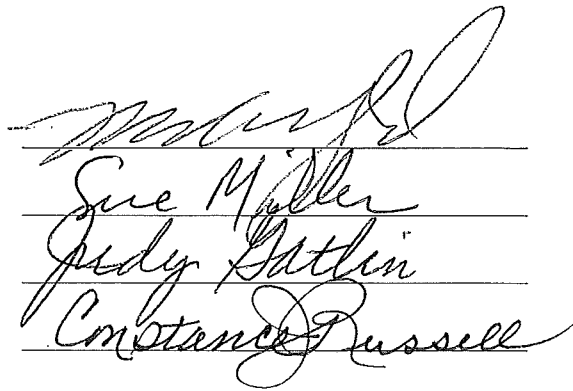 Sue Miller
Judy Gatlin
Constance J Russell